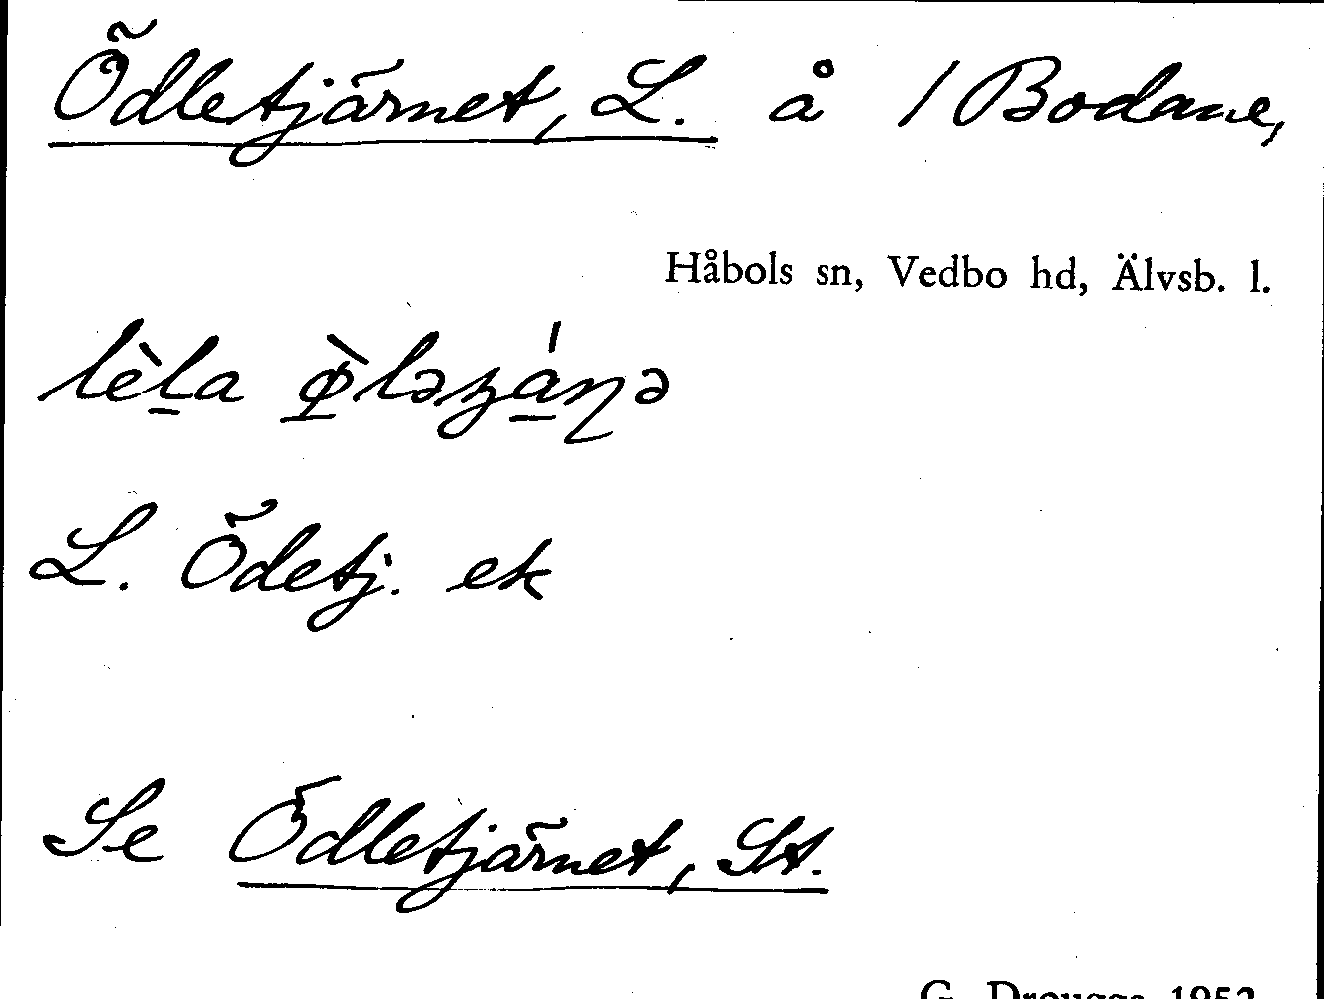 Ödletjärnet, L. å / Bodane,
Håbols sn, Vedbo hd, Älvsb. l.
lèḻa ø̱̀ləʒá̱ɳə
L. Ödetj. ek
Se Ödletjärnet, St.
G. Drougge 1952